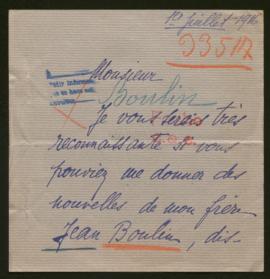 1er juillet 1916
D3517
Monsieur
Boulin
Je vous serais très
reconnaissante si vous
pouviez me donner des
nouvelles de mon frère
Jean Boulin, dis-